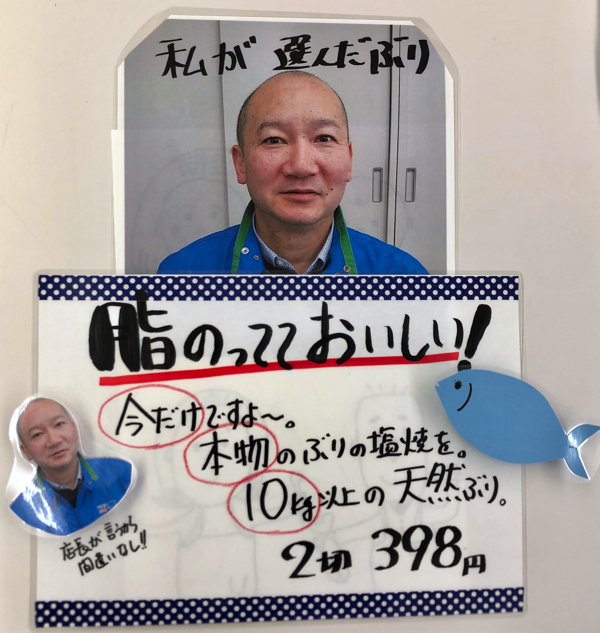 私が 選んだぶり
脂のってておいしい!
今だけですよ~。
本物のぶりの塩焼を。
10kg以上の天然ぶり。
2切 398円
店長が言うから
間違いなし!!